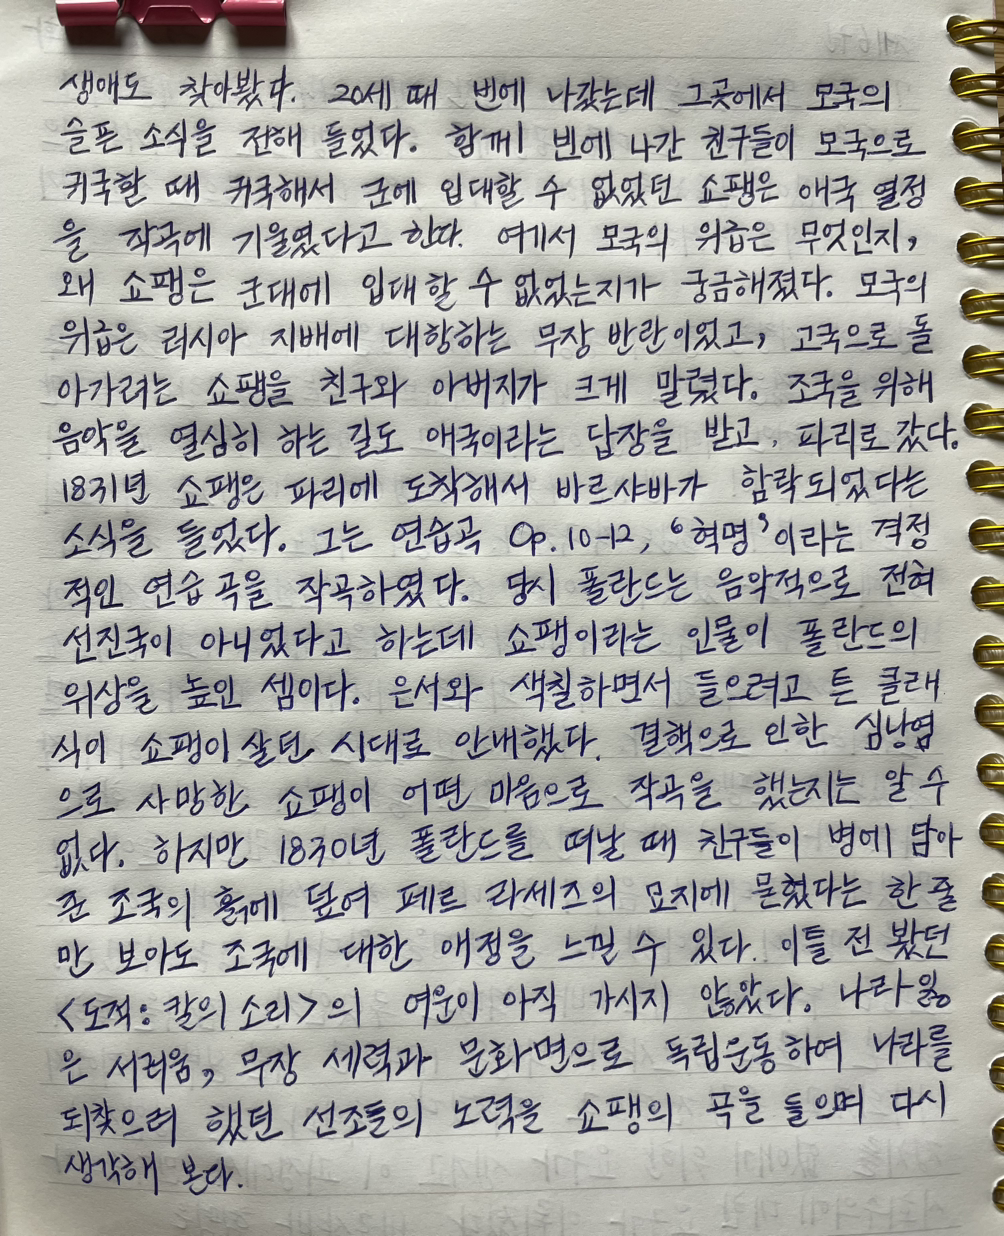 생애도 찾아봤다. 20세 때 빈에 나갔는데 그곳에서 모국의
슬픈 소식을 전해 들었다. 함께 빈에 나간 친구들이 모국으로
귀국할 때 귀국해서 군에 입대할 수 없었던 쇼팽은 애국 열정
을 작곡에 기울였다고 한다. 여기서 모국의 위급은 무엇인지,
왜 쇼팽은 군대에 입대할 수 없었는지가 궁금해졌다. 모국의
위급은 러시아 지배에 대항하는 무장 반란이었고, 고국으로 돌
아가려는 쇼팽을 친구와 아버지가 크게 말렸다. 조국을 위해
음악을 열심히 하는 길도 애국이라는 답장을 받고, 파리로 갔다.
1831년 쇼팽은 파리에 도착해서 바르샤바가 함락되었다는
소식을 들었다. 그는 연습곡 Op.10-12, '혁명'이라는 격정
적인 연습곡을 작곡하였다. 당시 폴란드는 음악적으로 전혀
선진국이 아니었다고 하는데 쇼팽이라는 인물이 폴란드의
위상을 높인 셈이다. 은서와 색칠하면서 들으려고 튼 클래
식이 쇼팽이 살던 시대로 안내했다. 결핵으로 인한 심낭염
으로 사망한 쇼팽이 어떤 마음으로 작곡을 했는지는 알 수
없다. 하지만 1830년 폴란드를 떠날 때 친구들이 병에 담아
준 조국의 흙에 덮여 페르 라세즈의 묘지에 묻혔다는 한 줄
만 보아도 조국에 대한 애정을 느낄 수 있다. 이틀 전 봤던
<도적: 칼의 소리>의 여운이 아직 가시지 않았다. 나라 잃
은 서러움, 무장 세력과 문화면으로 독립운동하여 나라를
되찾으려 했던 선조들의 노력을 쇼팽의 곡을 들으며 다시
생각해 본다.